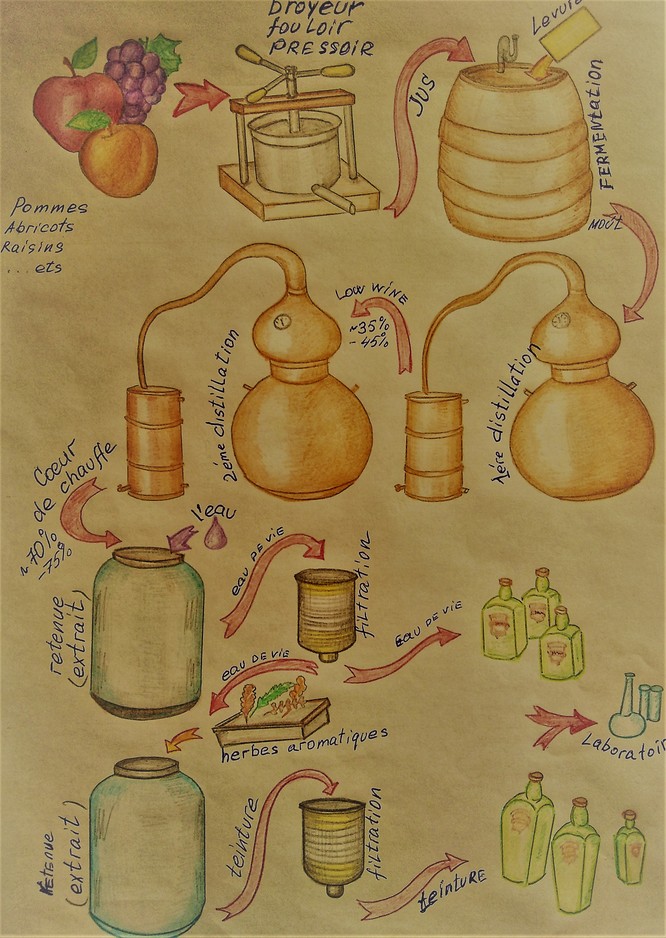 broyeur
fouLoir
PRESSOIR
Levure
JUS
FERMENTation
Pommes
Abricots
Raisins
...ets
MOÛT
LOW WINE
~35%
-45%
2éme distillation
1ére distillation
Cœur
de chauffe
~70%
-75%
l'eau
EAU DE VIE
filtration
retenue
(extrait)
EAU DE VIE
EAU DE VIE
herbes aromatiques
Laboratoir
Retenue
(extrait)
teinture
filtration
teinture